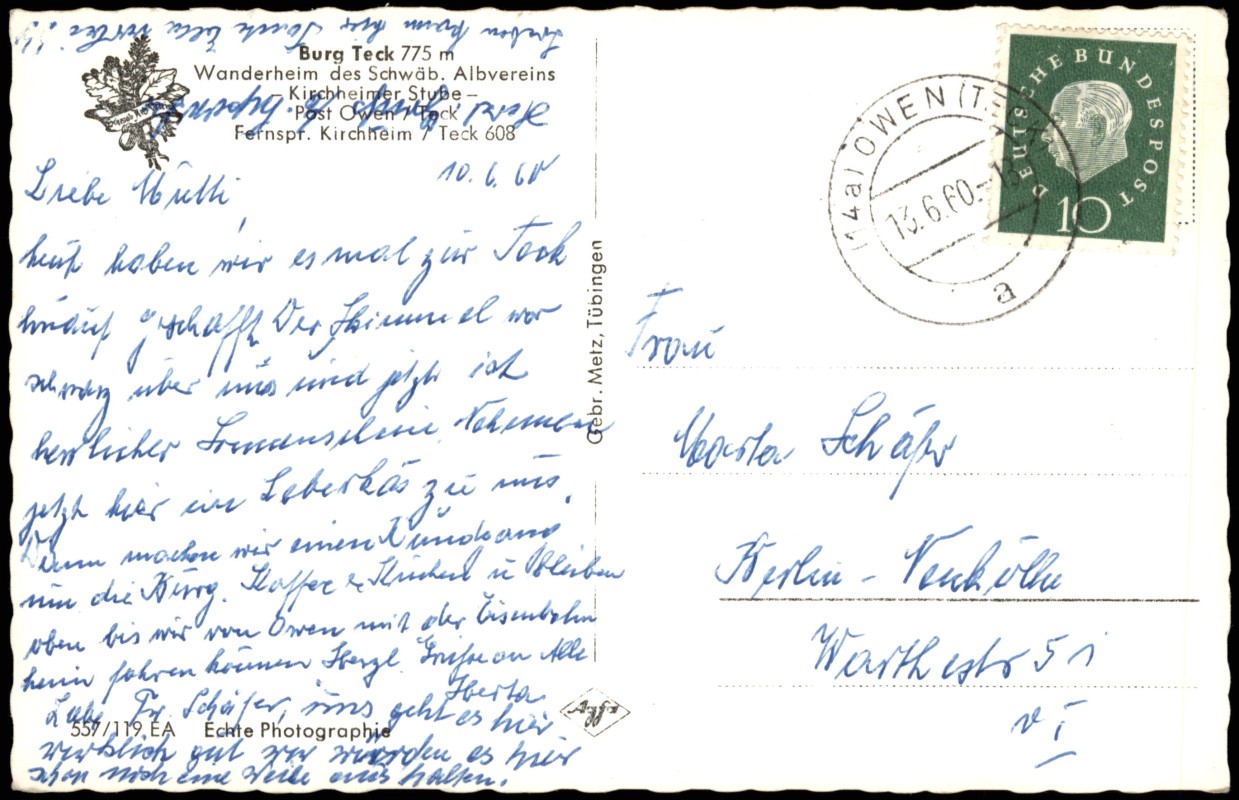 Burg Teck 775 m
Wanderheim des Schwäb. Albvereins
– Kirchheimer Stube –
Post Owen / Teck
Fernspr. Kirchheim / Teck 608
10. 6. 60
Liebe Mutti,
heut haben wir es mal zur Teck
hinauf geschafft Der Himmel war
schwarz über uns und jetzt ist
herrlicher Sonnenschein. Nehmen
jetzt hier ein Leberkäs zu uns.
Dann machen wir einen Rundgang
um die Burg. Kaffee & Kuchen u bleiben
oben bis wir von Owen mit der Eisenbahn
heim fahren können Herzl. Grüße an Alle
Herta
Liebe Fr. Schäfer, uns geht es hier
wirklich gut wir würden es hier
schon noch eine Weile aushalten.
557/119 EA Echte Photographie
Agfa
Gebr. Metz, Tübingen
(14a) OWEN (T
13.6.60.-13
a
DEUTSCHE BUNDESPOST
10
Frau
Marta Schäfer
Berlin - Neukölln
Warthestr 51
v I